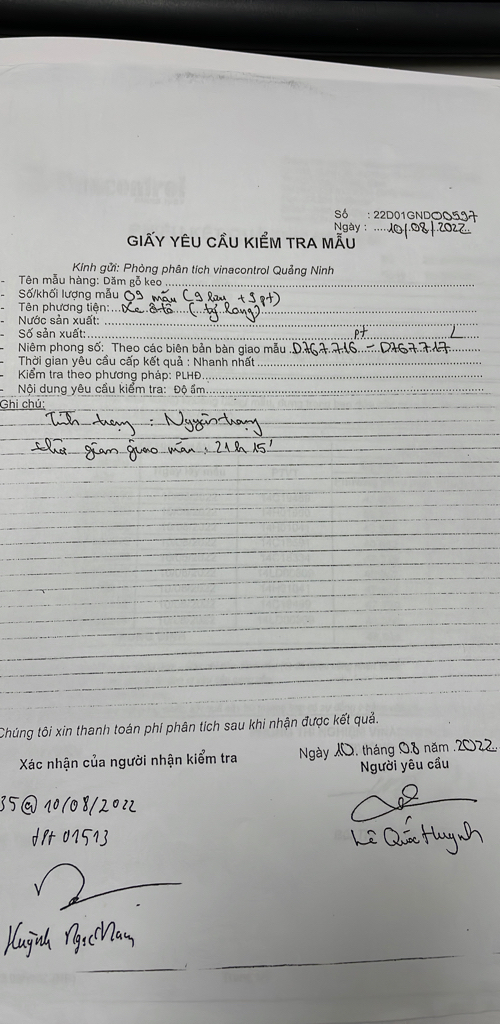 Số : 22D01GND00597
Ngày : ....10/08/2022..
GIẤY YÊU CẦU KIỂM TRA MẪU
Kính gửi: Phòng phân tích vinacontrol Quảng Ninh
- Tên mẫu hàng: Dăm gỗ keo
- Số/khối lượng mẫu 09 mẫu (9 lưu + 9 pt)
- Tên phương tiện:... Xe ôtô (tự long)
- Nước sản xuất:
- Số sản xuất:
pt L
- Niêm phong số: Theo các biên bản bàn giao mẫu D767.716 - D767.717
- Thời gian yêu cầu cấp kết quả : Nhanh nhất
- Kiểm tra theo phương pháp: PLHĐ
- Nội dung yêu cầu kiểm tra: Độ ẩm
Ghi chú:
Tình trạng : Nguyên trạng
thời gian giao mẫu : 21h15'
Chúng tôi xin thanh toán phí phân tích sau khi nhận được kết quả.
Ngày 10. tháng 08 năm 2022
Xác nhận của người nhận kiểm tra
Người yêu cầu
35@10/08/2022
01513
Lê Quốc Huynh
Huỳnh Ngọc Nam